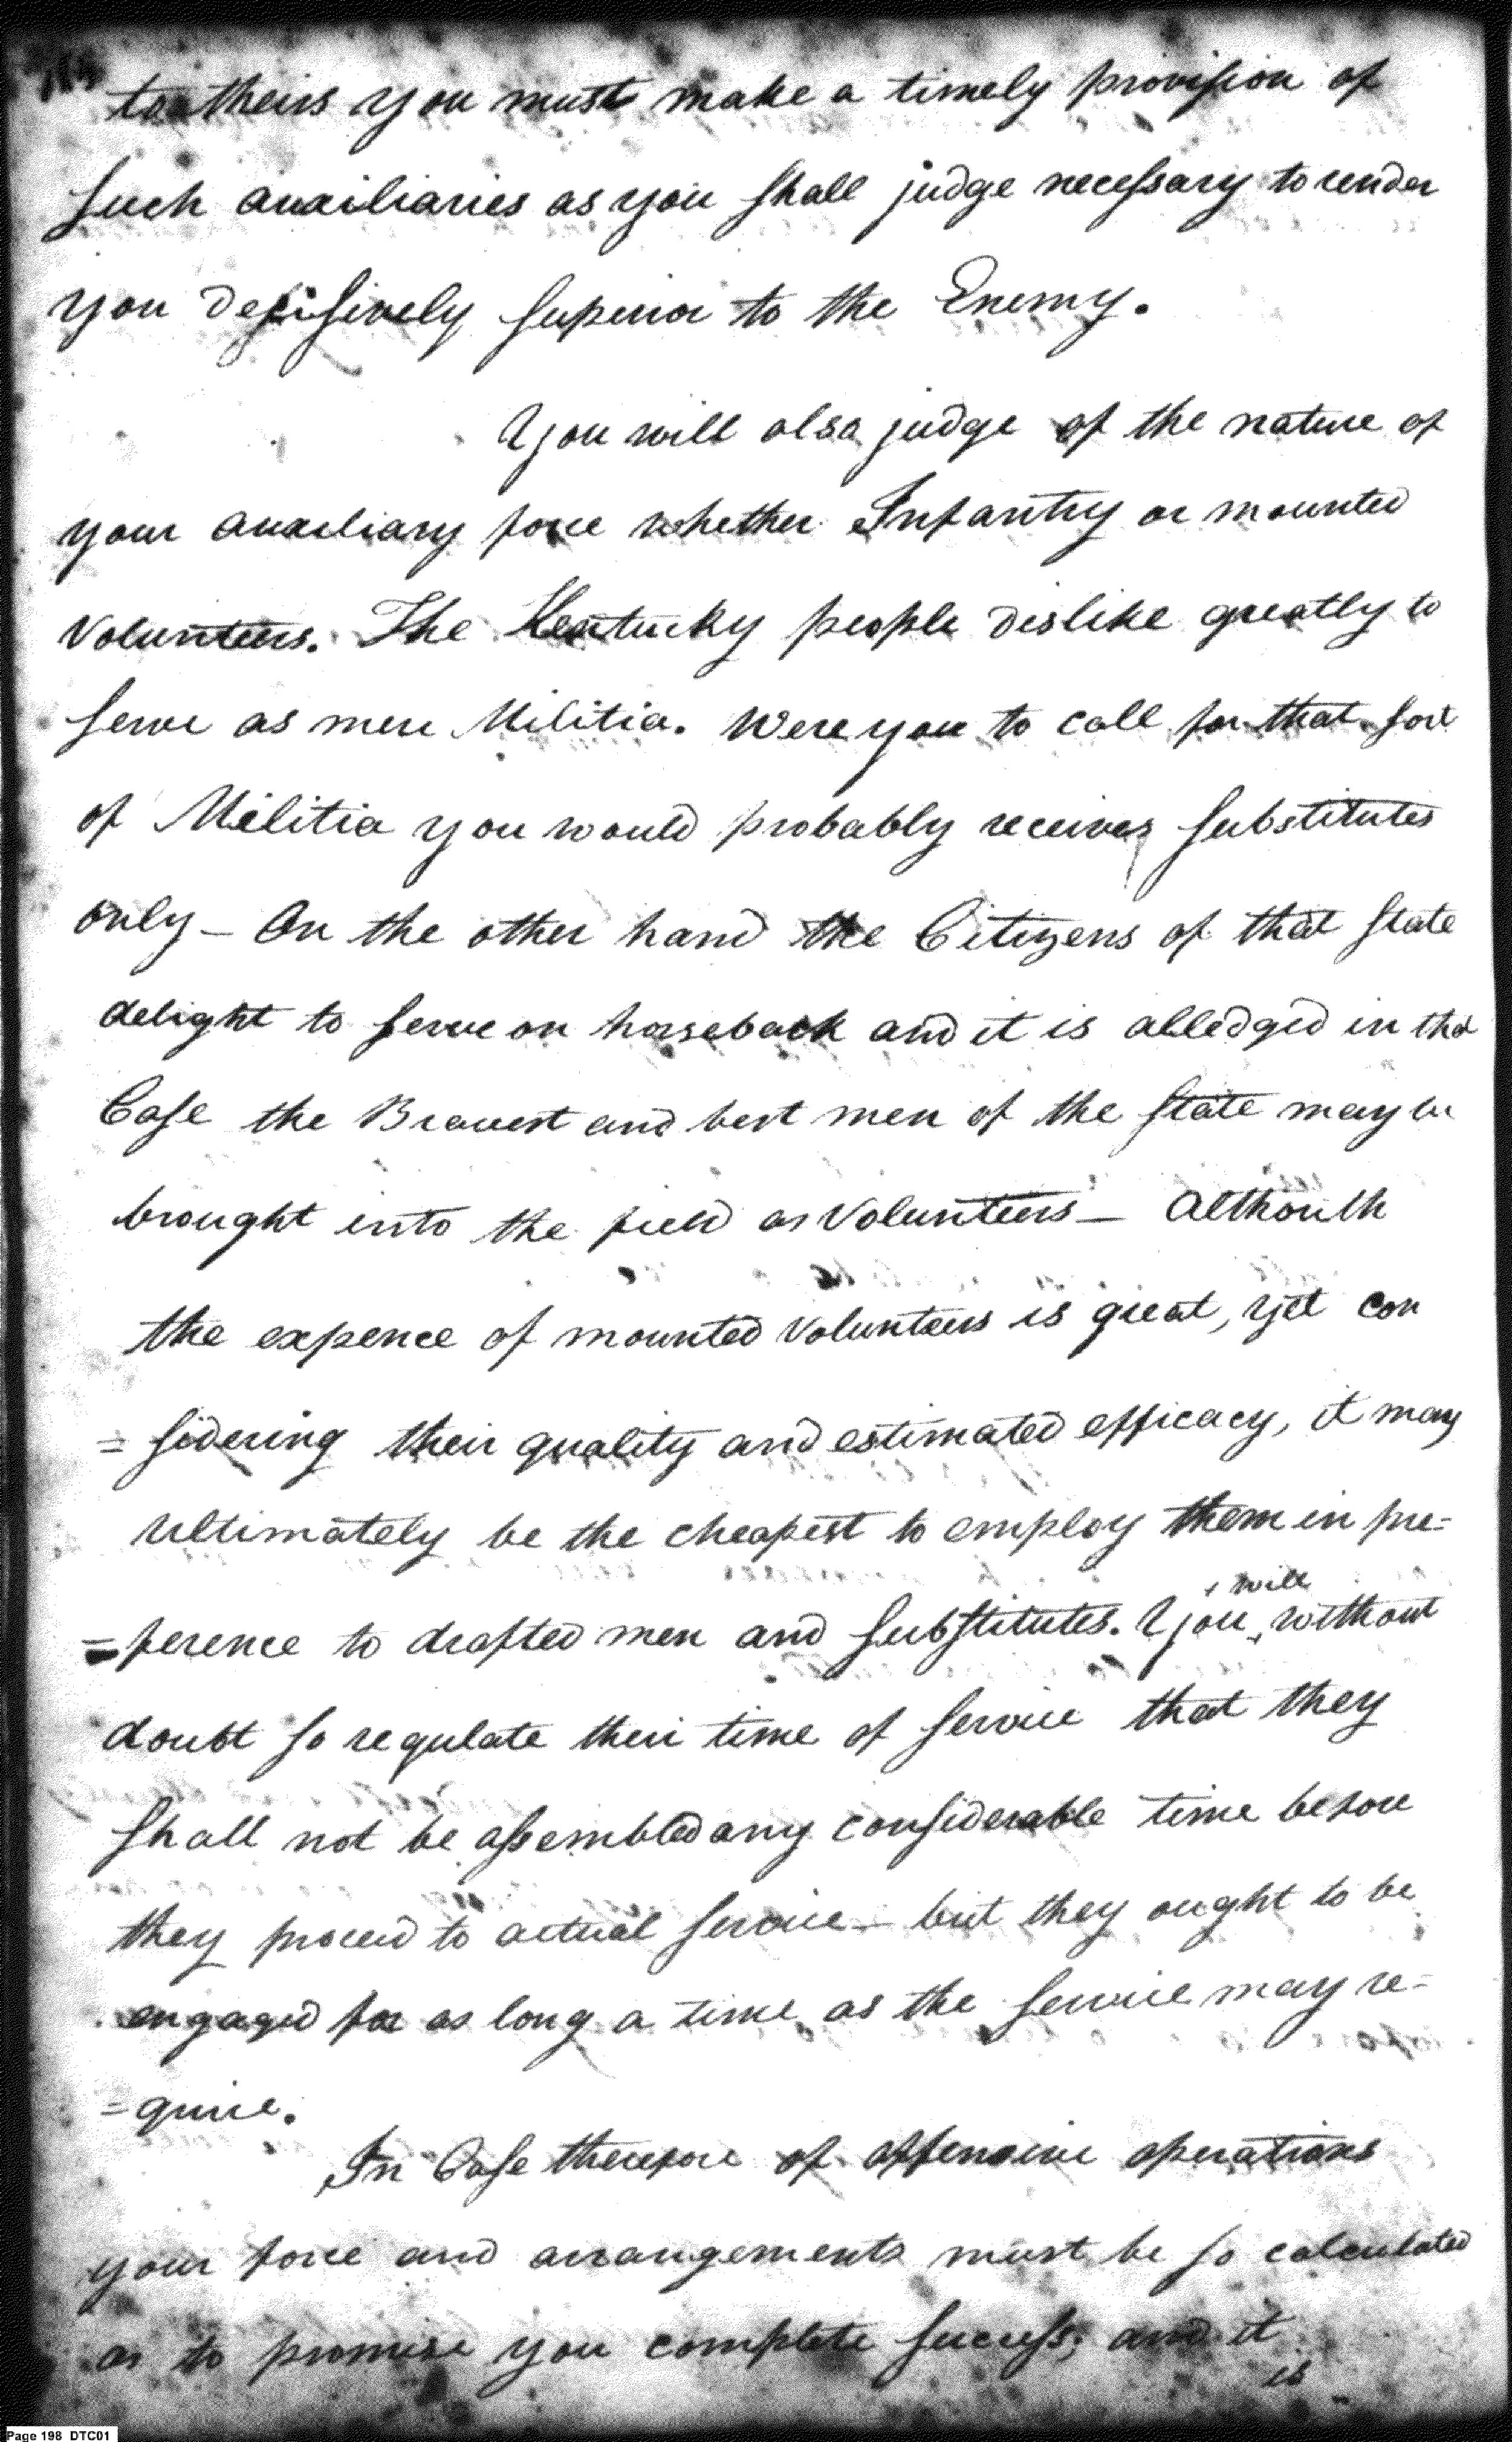 to theirs you must make a timely provision of
such auxiliaries as you shall judge necessary to render
you decisively superior to the Enemy.
You will also judge of the nature of
your auxiliary force whether Infantry or mounted
Volunteers. The Kentucky people dislike greatly to
serve as mere Militia. Were you to call for that sort
of Militia you would probably receive substitutes
only — On the other hand the Citizens of that State
delight to serve on horseback and it is alledged in that
Case the Bravest and best men of the State may be
brought into the field as Volunteers — Althouth
the expence of mounted Volunteers is great, yet con
= sidering their quality and estimated efficacy, it may
ultimately be the cheapest to employ them in pre=
=ference to drafted men and substitutes. You will without
doubt so regulate their time of service that they
shall not be assembled any considerable time before
they proceed to actual service — but they ought to be
engaged for as long a time as the service may re=
=quire.
In Case therefore of offensive operations
your force and arrangements must be so calculated
as to promise you complete success; and it
is
Page 198 DTC01